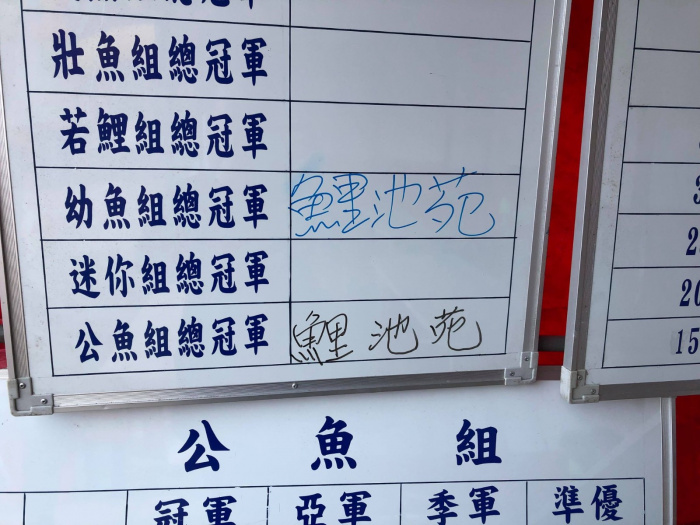 壯魚組總冠軍
若鯉組總冠軍
幼魚組總冠軍 鯉池苑
迷你組總冠軍
公魚組總冠軍 鯉池苑
公魚組
冠軍 亞軍 季軍 準優
3
2
20
15